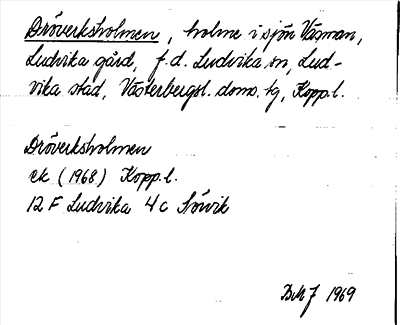 Dröverksholmen, holme i sjön Väsman,
Ludvika gård, f.d. Ludvika sn, Lud-
vika stad, Västerbergsl. doms. tg, Kopp.l.
Dröverksholmen
ek (1968) Kopp.l.
12 F Ludvika 4c Sörvik
1969